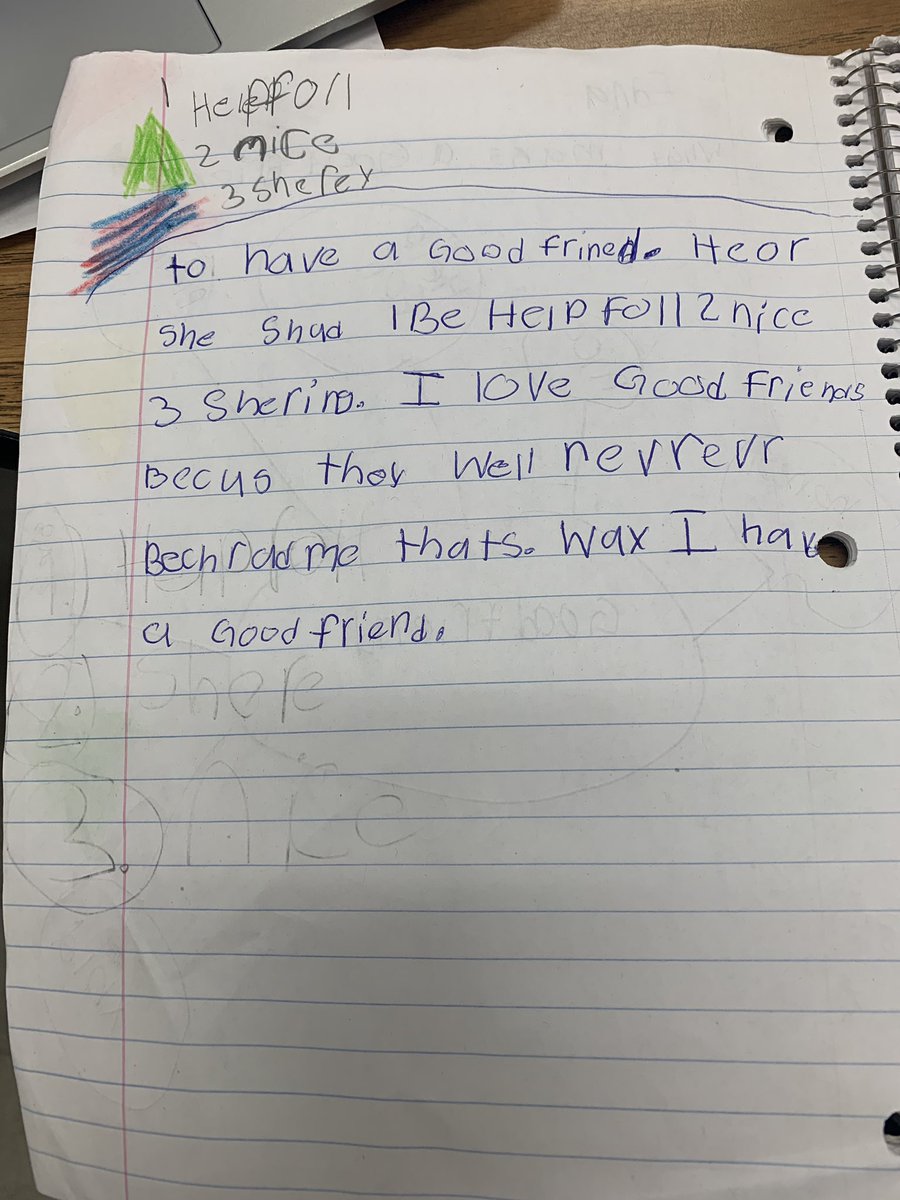 1 Helpfoll
2 nice
3 Sherex
to have a Good frined. He or
she Shud 1 Be HelpFoll 2 nice
3 Shering. I love Good Friends
Becus they well nevrevr
Bechradd me thats. Wax I hav
a Good friend.
Shere
3. nice